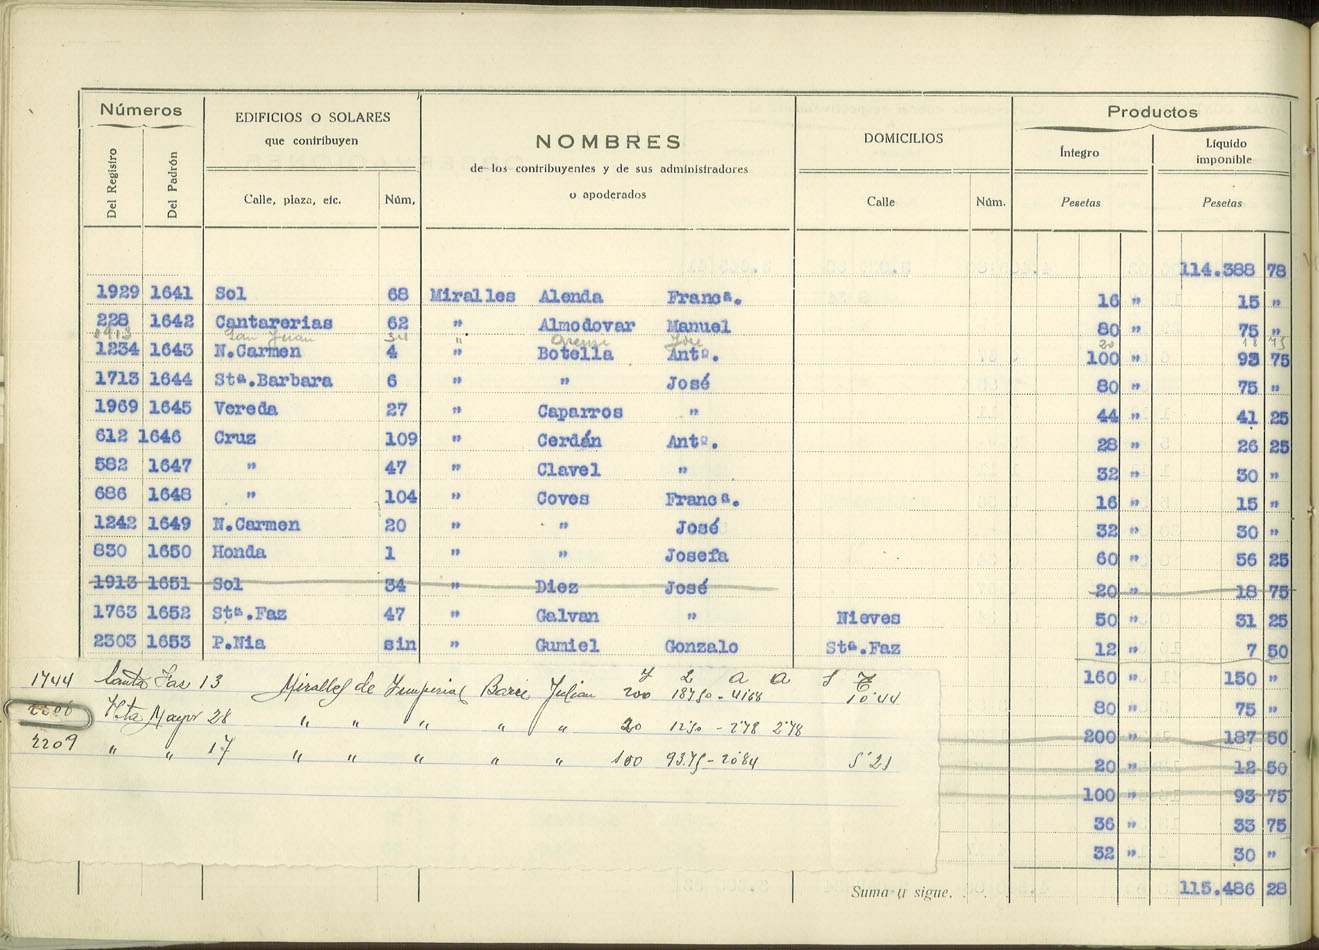 Números
EDIFICIOS O SOLARES
que contribuyen
NOMBRES
de los contribuyentes y de sus administradores
o apoderados
DOMICILIOS
Productos
Íntegro
Líquido
imponible
Del Registro
Del Padrón
Calle, plaza, etc.
Núm,
Calle
Núm.
Pesetas
Pesetas
114.388 78
1929 1641 Sol 68 Miralles Alenda Francª. 16 " 15 "
228 1642 Cantarerias 62 " Almodovar Manuel 80 " 75 "
1913 San Juan 34 " José 20 18 75
1234 1643 N.Carmen 4 " Botella Antº. 100 " 93 75
1713 1644 Stª.Barbara 6 " " José 80 " 75 "
1969 1645 Vereda 27 " Caparros " 44 " 41 25
612 1646 Cruz 109 " Cerdán Antº. 28 " 26 25
582 1647 " 47 " Clavel " 32 " 30 "
686 1648 " 104 " Coves Francª. 16 " 15 "
1242 1649 N.Carmen 20 " " José 32 " 30 "
830 1650 Honda 1 " " Josefa 60 " 56 25
1913 1651 Sol 34 " Diez José 20 " 18 75
1763 1652 Stª.Faz 47 " Galvan " Nieves 50 " 31 25
2303 1653 P.Nia sin " Gumiel Gonzalo Stª.Faz 12 " 7 50
160 " 150 "
80 " 75 "
200 " 187 50
20 " 12 50
100 " 93 75
36 " 33 75
32 " 30 "
1744 Santa Faz 13 Miralles de Imperial Barrie Julian 200 187'50 - 41'68 10'44
Mayor 28 " " " " " 20 12'50 - 2'78 2'78
2209 " " 17 " " " " " 100 93'75 - 20'84 5'21
Suma y sigue. 115.486 28